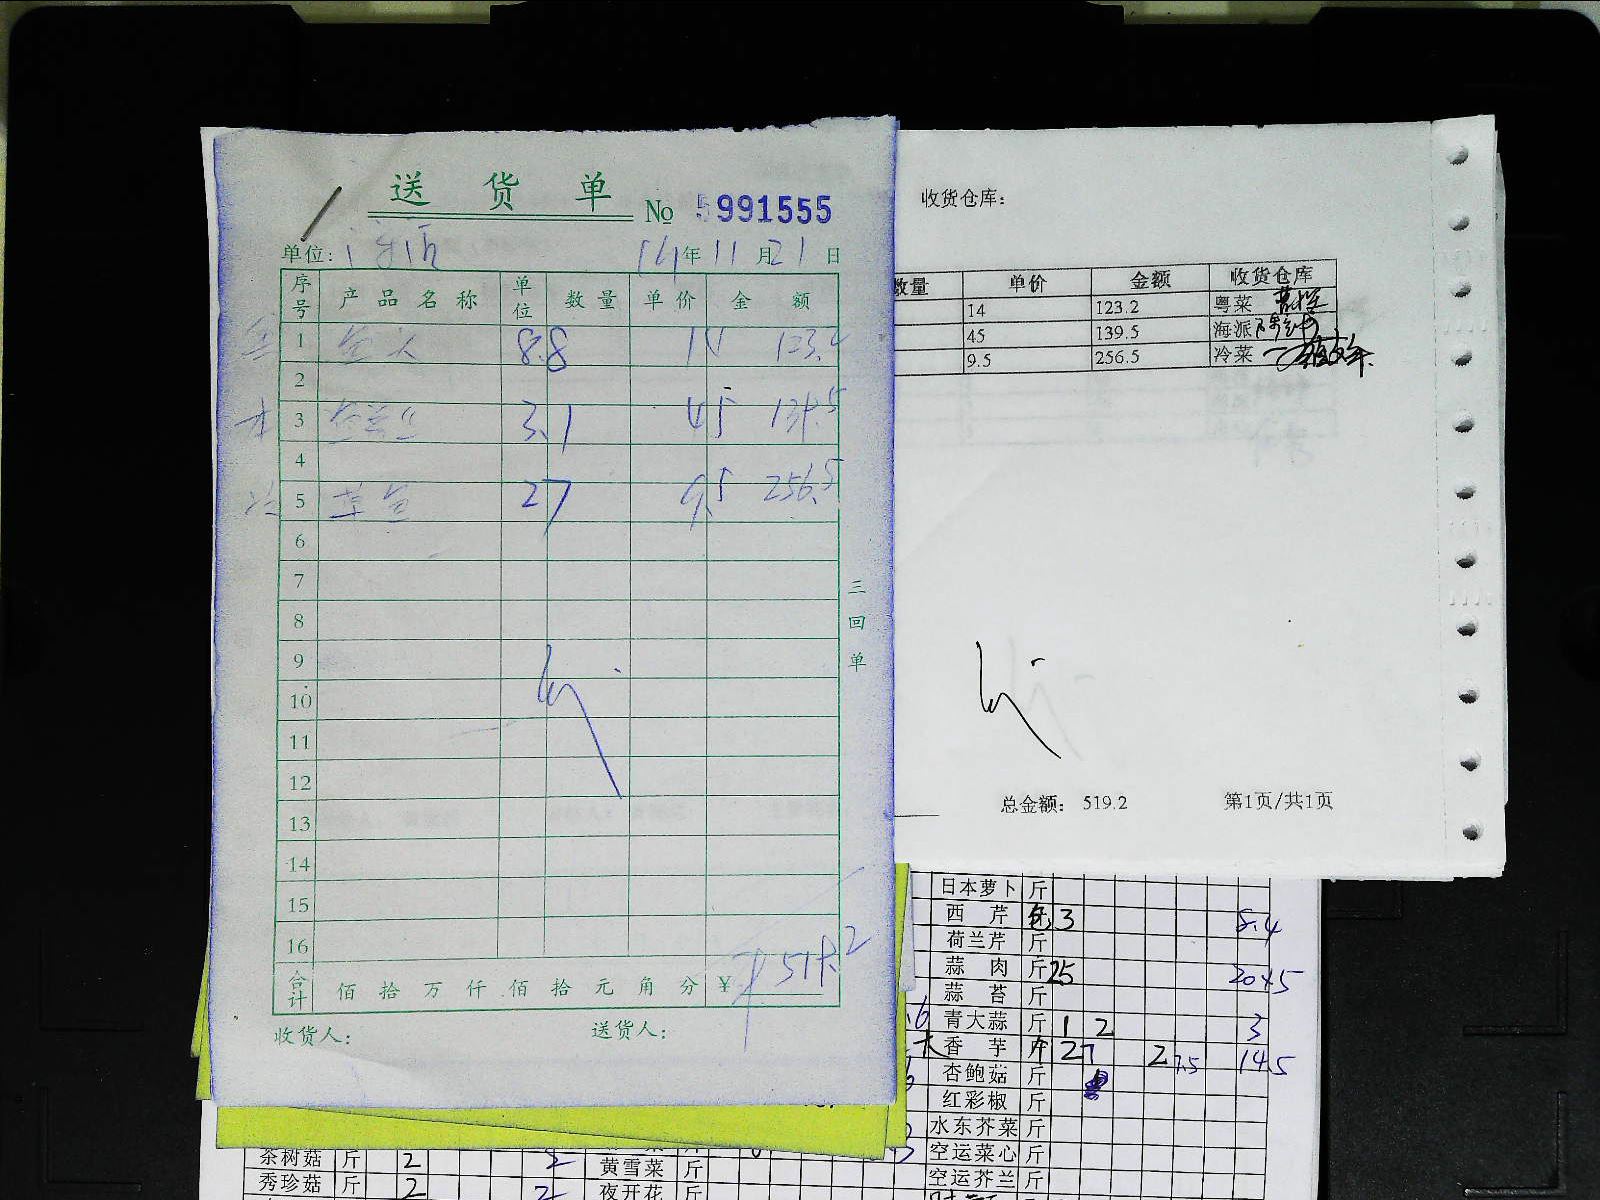 送货单
No 5991555
单位:
14年11月21日
序号 产品名称 单位 数量 单价 金额
1 8.8 14 123.2
2
3 3.1 45 139.5
4
5 草鱼 27 9.5 256.5
6
7
8
9
10
11
12
13
14
15
16
合计 佰拾万仟佰拾元角分 ¥ 519.2
收货人: 送货人:
三回单
收货仓库:
数量 单价 金额 收货仓库
14 123.2 粤菜
45 139.5 海派
9.5 256.5 冷菜
总金额: 519.2 第1页/共1页
日本萝卜 斤
西芹 3 8.4
荷兰芹 斤
蒜肉 斤 25
蒜苔 斤
青大蒜 斤 1 2 3
香芋 斤 27 27.5 14.5
杏鲍菇 斤
红彩椒 斤
水东芥菜 斤
空运菜心 斤
空运芥兰 斤
茶树菇 斤 2 2 黄雪菜 斤
秀珍菇 斤 2 2 夜开花 斤